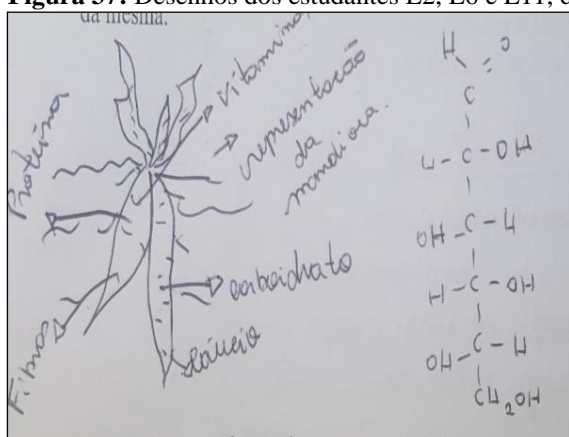 Figura 37: Desenhos dos estudantes E2, E8 e E11, d
da mesma.
Proteína
vitamina
representação
da
mandioca.
carboidrato
Fibras
H O
C
H - C - OH
OH - C - H
H - C - OH
OH - C - H
CH₂OH